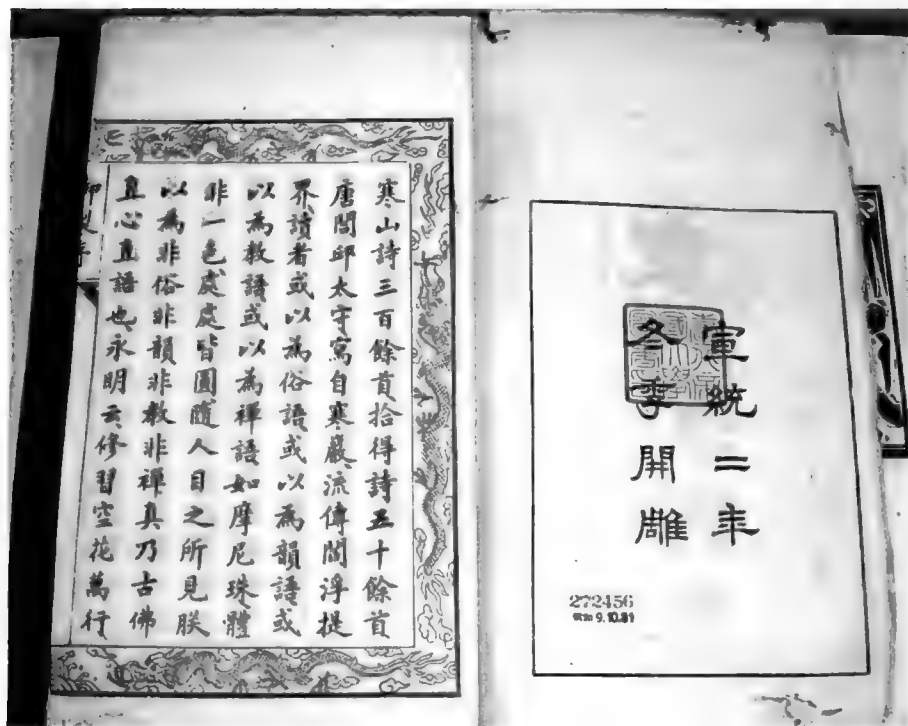 宣統二年
冬季開雕
272456
寒山詩三百餘首拾得詩五十餘首
唐閭邱太守寫自寒巖流傳閻浮提
界讀者或以為俗語或以為韻語或
以為教語或以為禪語如摩尼珠體
非一色處處皆圓隨人目之所見朕
以為非俗非韻非教非禪真乃古佛
直心直語也永明云修習空花萬行
御製序